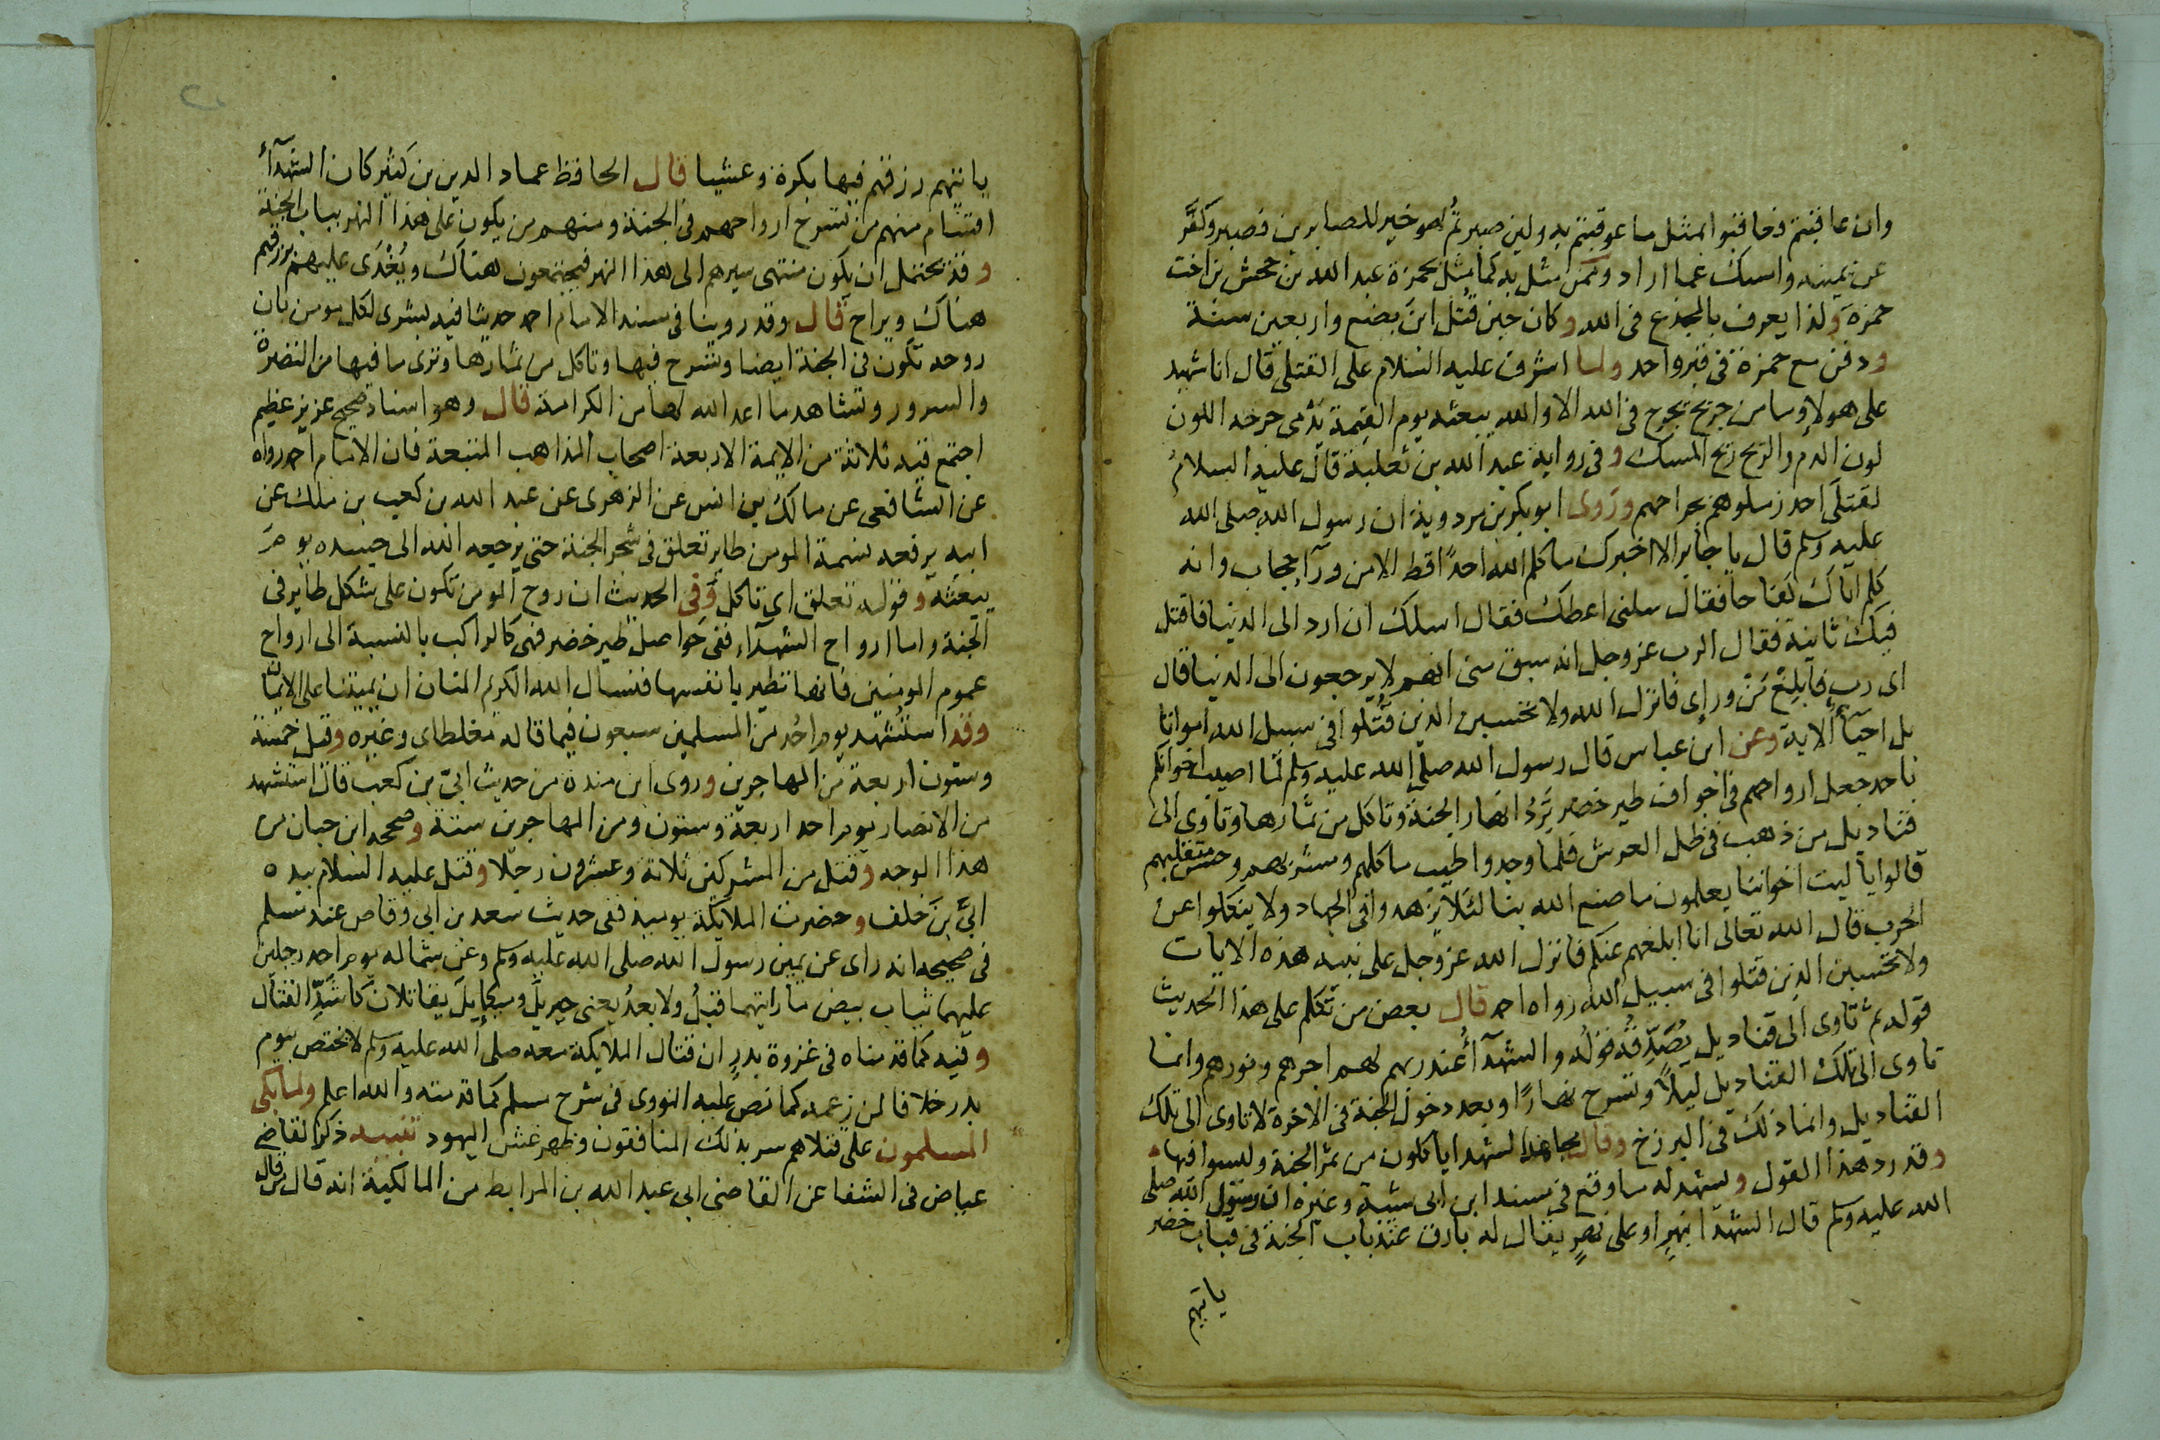 وان عاقبتم فعاقبوا بمثل ما عوقبتم به ولين صبرتم لهو خير للصابرين فصبر وكفر
عن يمينه وامسك عما اراد وممن مثل به كما مثل بحمزة عبد الله بن جحش بن اخت
حمزة ولذا يعرف بالمجدع في الله وكان حين قتل ابن بضع واربعين سنة
ودفن مع حمزة في قبر واحد ولما اشرف عليه السلام على القتلى قال انا شهيد
على هولاء وما من جريح يجرح في الله الا والله يبعثه يوم القيمة يدمى جرحه اللون
لون الدم والريح ريح المسك وفي رواية عبد الله بن ثعلبة قال عليه السلام
لقتلى احد زملوهم بجراحهم وروى ابو بكر بن مردوية ان رسول الله صلى الله
عليه وسلم قال يا جابر الا اخبرك ما كلم الله احدًا قط الا من ورآ حجاب وانه
كلم اباك كفاحا فقال سلني اعطك فقال اسلك ان ارد الى الدنيا فاقتل
فيك ثانية فقال الرب عز وجل انه سبق منى انهم لا يرجعون الى الدنيا قال
اى رب فابلغ من ورإى فانزل الله ولا تحسبن الذين قتلوا في سبيل الله امواتا
بل احيآ الاية وعن ابن عباس قال رسول الله صلى الله عليه وسلم لما اصيب اخوانكم
باحد جعل ارواحهم في اجواف طير خضر ترد انهار الجنة وتاكل من ثمارها وتاوى الى
قناديل من ذهب في ظل العرش فلما وجدوا طيب ماكلهم ومشربهم وحسن مقيلهم
قالوا يا ليت اخواننا يعلمون ما صنع الله بنا لئلا يزهدوا في الجهاد ولا يتكلوا عن
الحرب قال الله تعالى انا ابلغهم عنكم فانزل الله عز وجل على نبيه هذه الايات
ولا تحسبن الذين قتلوا في سبيل الله رواه احمد قال بعض من تكلم على هذا الحديث
قوله ثم تاوى الى قناديل يصدقه قوله والشهدآء عند ربهم لهم اجرهم ونورهم وانما
تاوى الى تلك القناديل ليلاً وتسرح نهارًا وبعد دخول الجنة في الاخرة لا تاوى الى تلك
القناديل وانما ذلك في البرزخ وقال مجاهد الشهدا ياكلون من ثمر الجنة وليسوا فيها
وقد رد هذا القول ويشهد له ما وقع في مسند ابن ابى شيبة وغيره ان رسول الله صلى
الله عليه وسلم قال الشهدآ بنهر او على نهر يقال له بارق عند باب الجنة في قباب خضر
ياتيهم
ياتيهم رزقهم فيها بكرة وعشيا قال الحافظ عماد الدين بن كثير كان الشهدآء
اقسام منهم من تسرح ارواحهم في الجنة ومنهم من يكون على هذا النهر بباب الجنة
وقد يحتمل ان يكون منتهى سيرهم الى هذا النهر فيجتمعون هناك ويغدى عليهم برزقهم
هناك ويراح قال وقد روينا في مسند الامام احمد حديثا فيه بشرى لكل مومن بان
روحه تكون في الجنة ايضا وتسرح فيها وتاكل من ثمارها وترى ما فيها من النضرة
والسرور وتشاهد ما اعد الله لها من الكرامة قال وهو اسناد صحيح عزيز عظيم
اجتمع فيه ثلاثة من الايمة الاربعة اصحاب المذاهب المتبعة فان الامام احمد رواه
عن الشافعى عن مالك بن انس عن الزهرى عن عبد الله بن كعب بن ملك عن
ابيه يرفعه نسمة المومن طاير تعلق في شجر الجنة حتى يرجعه الله الى جسده يوم
يبعثه وقوله تعلق اي تاكل وفي الحديث ان روح المومن تكون على شكل طاير في
الجنة واما ارواح الشهدآء ففى حواصل طير خضر فهى كالراكب بالنسبة الى ارواح
عموم المومنين فانها تطير بانفسها فنسال الله الكريم المنان ان يميتنا على الايمان
وقد استشهد يوم احد من المسلمين سبعون فيما قاله مغلطاى وغيره وقيل خمسة
وستون اربعة من المهاجرين وروى ابن مندة من حديث ابي بن كعب قال استشهد
من الانصار يوم احد اربعة وستون ومن المهاجرين ستة وصححه ابن حبان من
هذا الوجه وقتل من المشركين ثلاثة وعشرون رجلا وقتل عليه السلام بيده
ابي بن خلف وحضرت الملايكة يوميذ ففى حديث سعد بن ابى وقاص عند مسلم
في صحيحه انه راى عن يمين رسول الله صلى الله عليه وسلم وعن شماله يوم احد رجلين
عليهما ثياب بيض ما رايتهما قبل ولا بعد يعنى جبريل وميكايل يقاتلان كاشد القتال
وفيه كما قدمناه في غزوة بدر ان قتال الملايكة معه صلى الله عليه وسلم لا يختص بيوم
بدر خلافا لمن زعمه كما نص عليه النووى في شرح مسلم كما قدمته والله اعلم ولما بكى
المسلمون على قتلاهم سر بذلك المنافقون وظهر غش اليهود تنبيه ذكر القاضى
عياض في الشفا عن القاضى ابى عبد الله بن المرابط من المالكية انه قال من قال